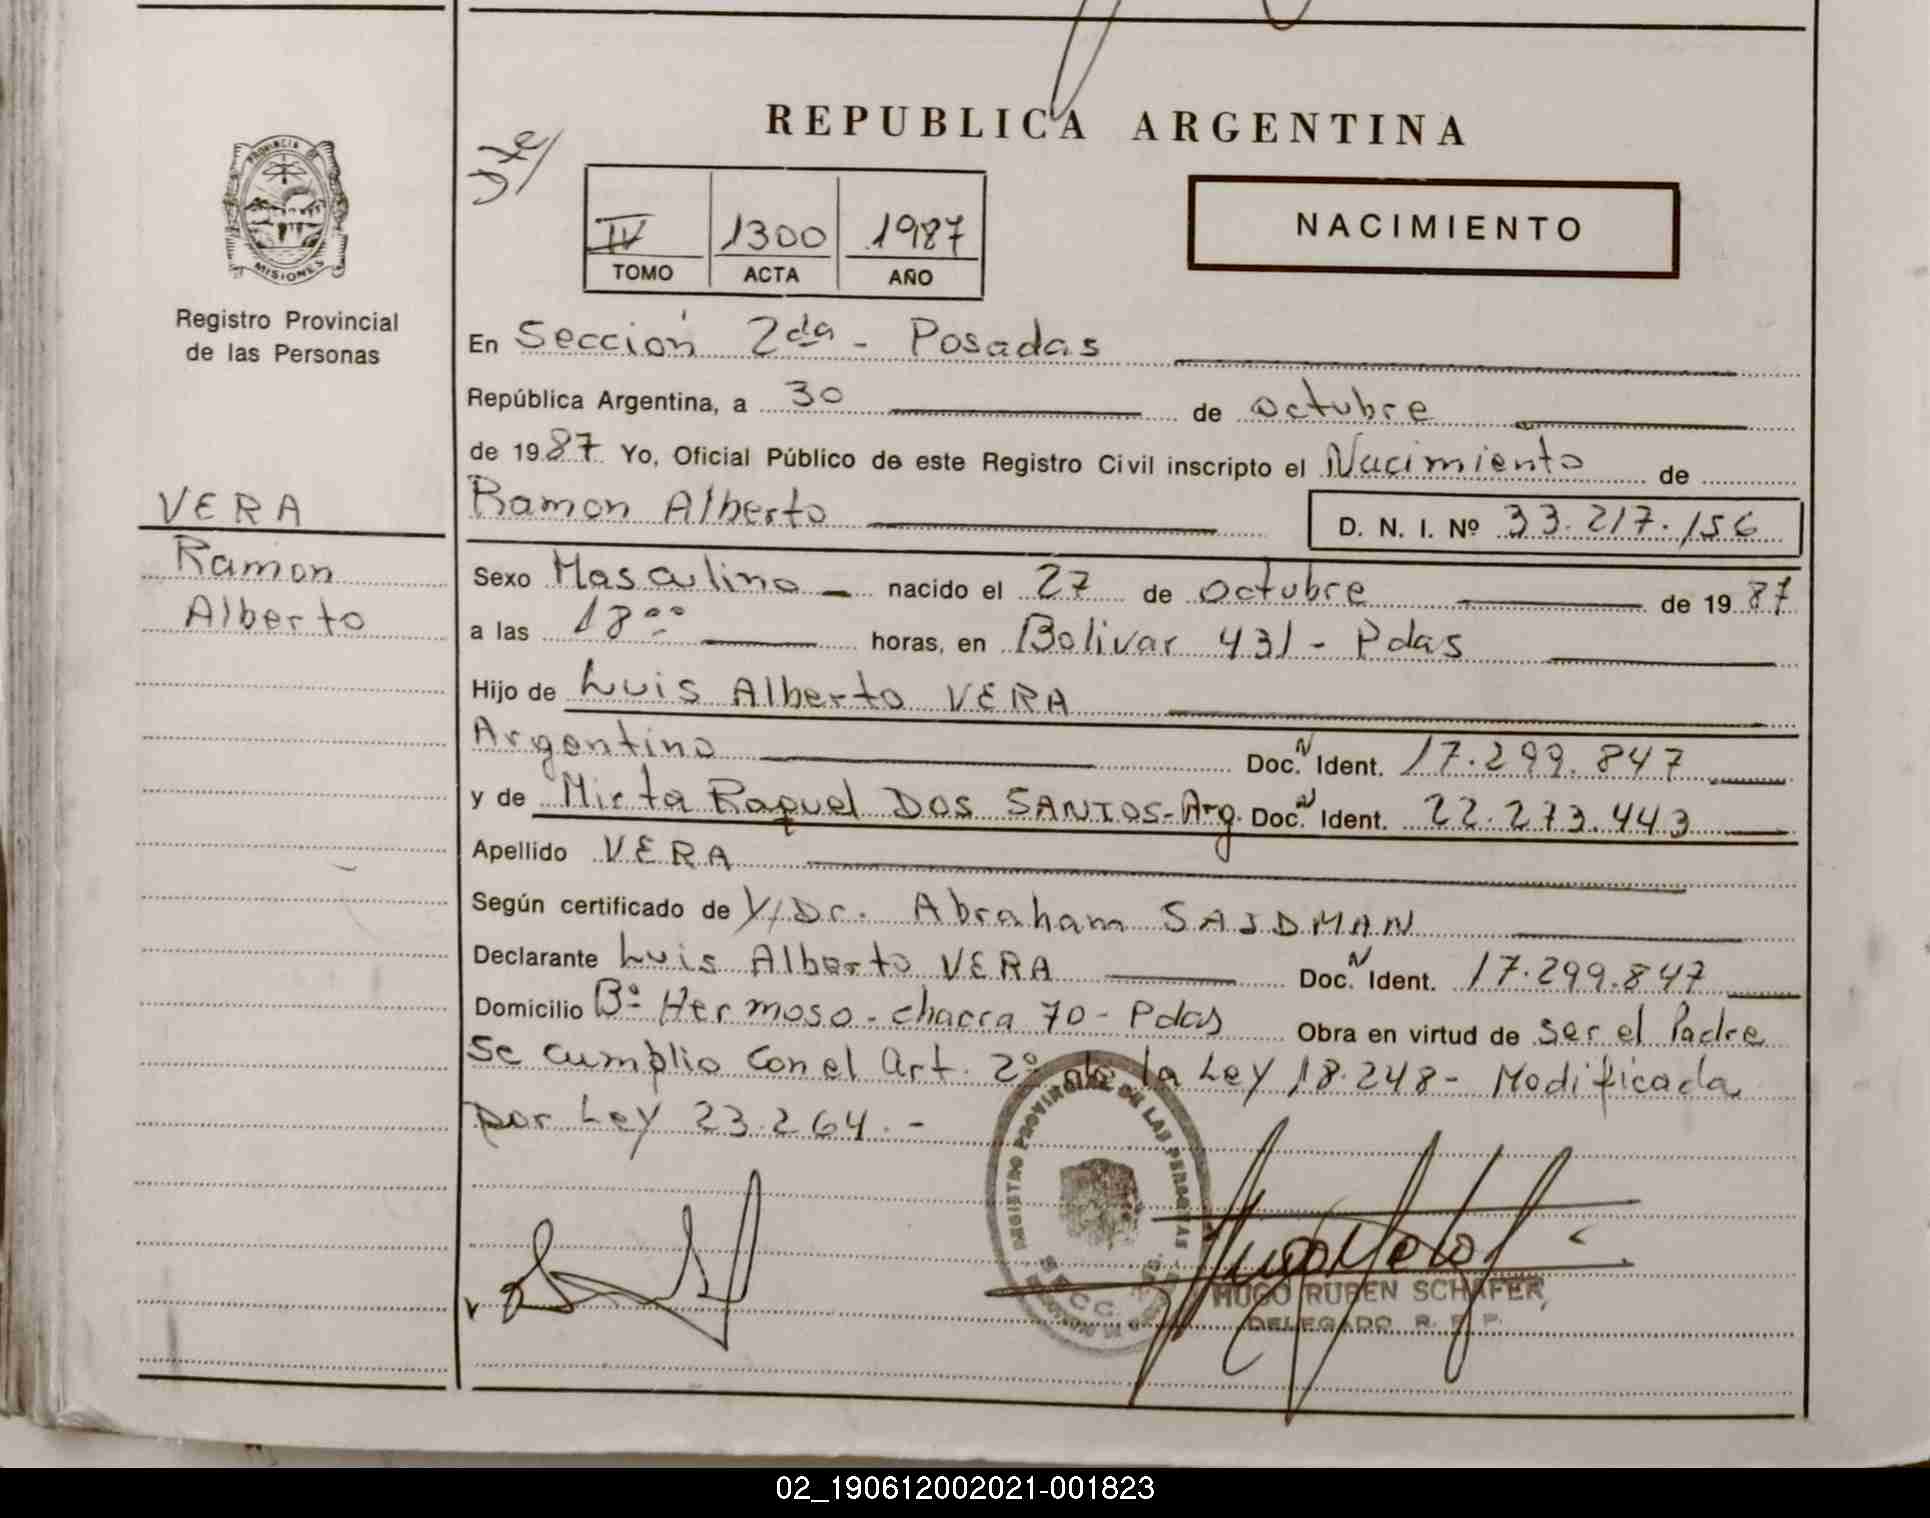 REPUBLICA ARGENTINA
PROVINCIA DE MISIONES
Registro Provincial
de las Personas
IV 1300 1987
TOMO ACTA AÑO
NACIMIENTO
En Sección 2da - Posadas
República Argentina, a 30 de octubre
de 1987 Yo, Oficial Público de este Registro Civil inscripto el Nacimiento de
Ramon Alberto D. N. I. Nº 33.217.156
VERA
Ramon
Alberto
Sexo Masculino nacido el 27 de octubre de 1987
a las 18 ºº horas, en Bolivar 431 - Pdas
Hijo de Luis Alberto VERA
Argentino Doc. N Ident. 17.299.847
y de Mirta Raquel DOS SANTOS - Arg. Doc. N Ident. 22.273.443
Apellido VERA
Según certificado de Dr. Abraham SAIDMAN
Declarante Luis Alberto VERA Doc. N Ident. 17.299.847
Domicilio Bº Hermoso - chacra 70 - Pdas Obra en virtud de ser el Padre
Se cumplio con el Art. 2º de la Ley 18.248 - Modificada
por Ley 23.264. -
REGISTRO PROVINCIAL DE LAS PERSONAS
HUGO RUBEN SCHAFER
DELEGADO R. P. P.
02_190612002021-001823